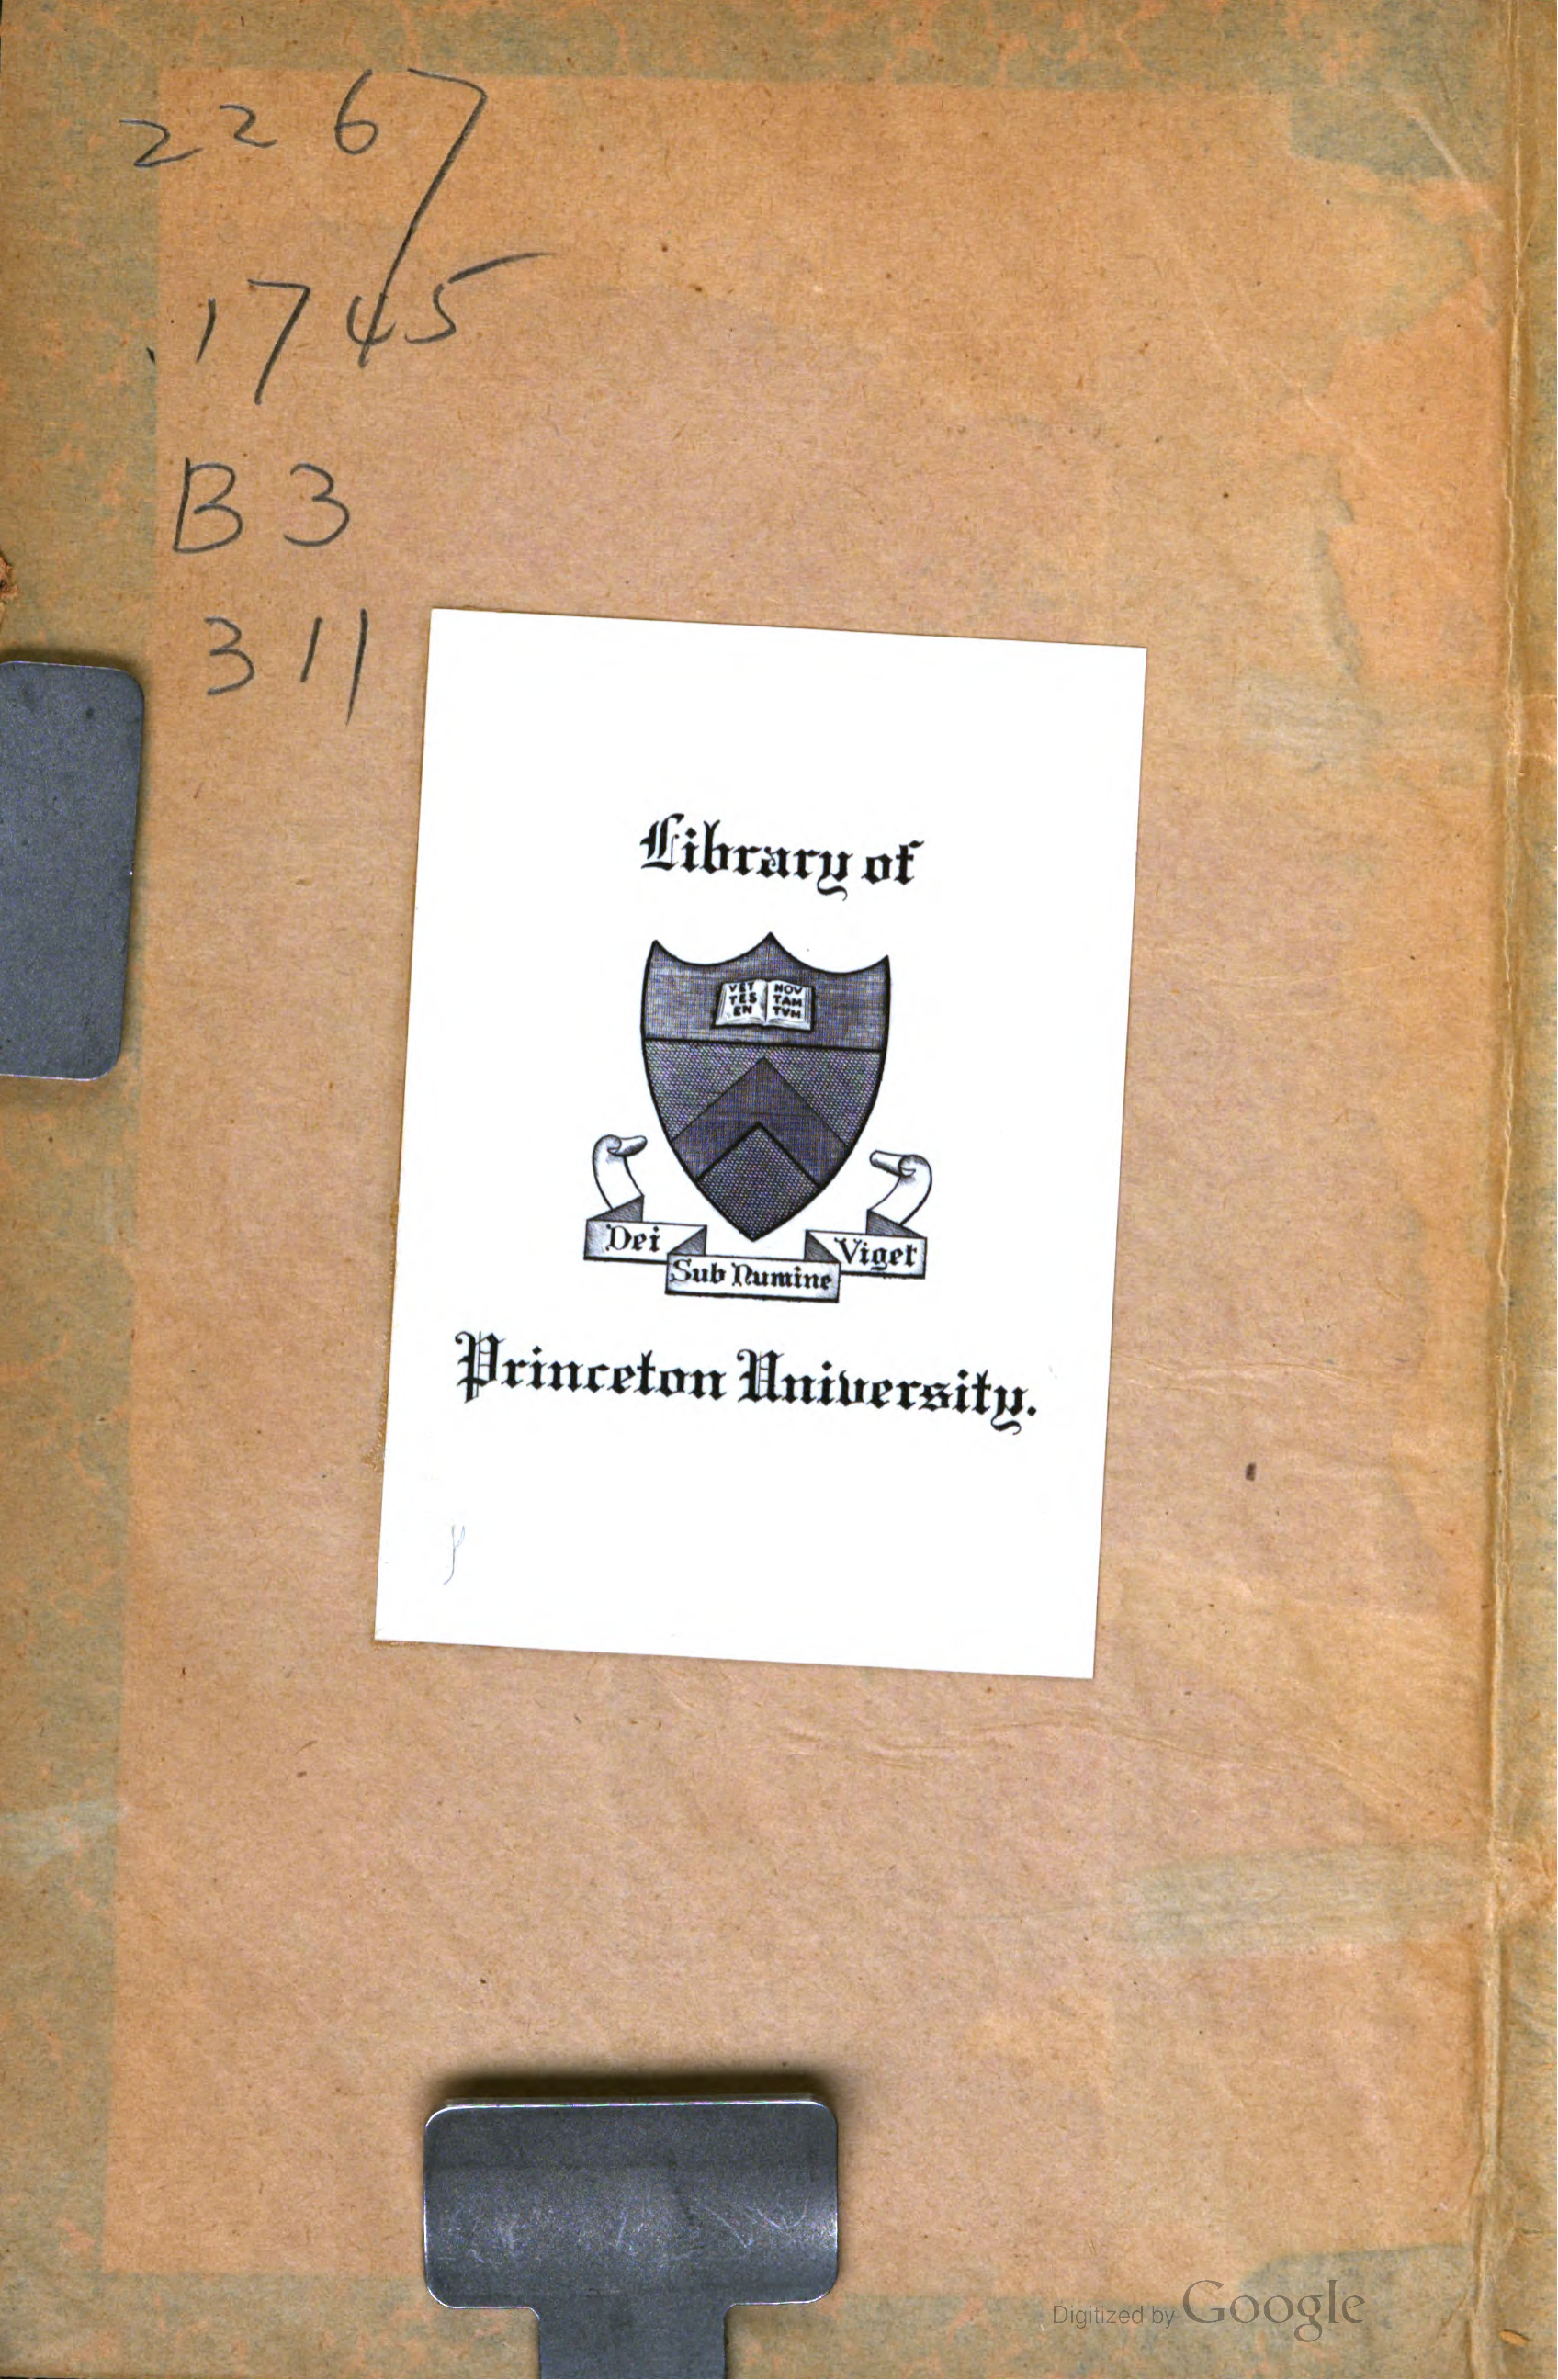 2267
.1745
B3
311
Library of
VET NOV
TES TAM
EN TVM
Dei
Sub Numine
Viget
Princeton University.
Digitized by Google